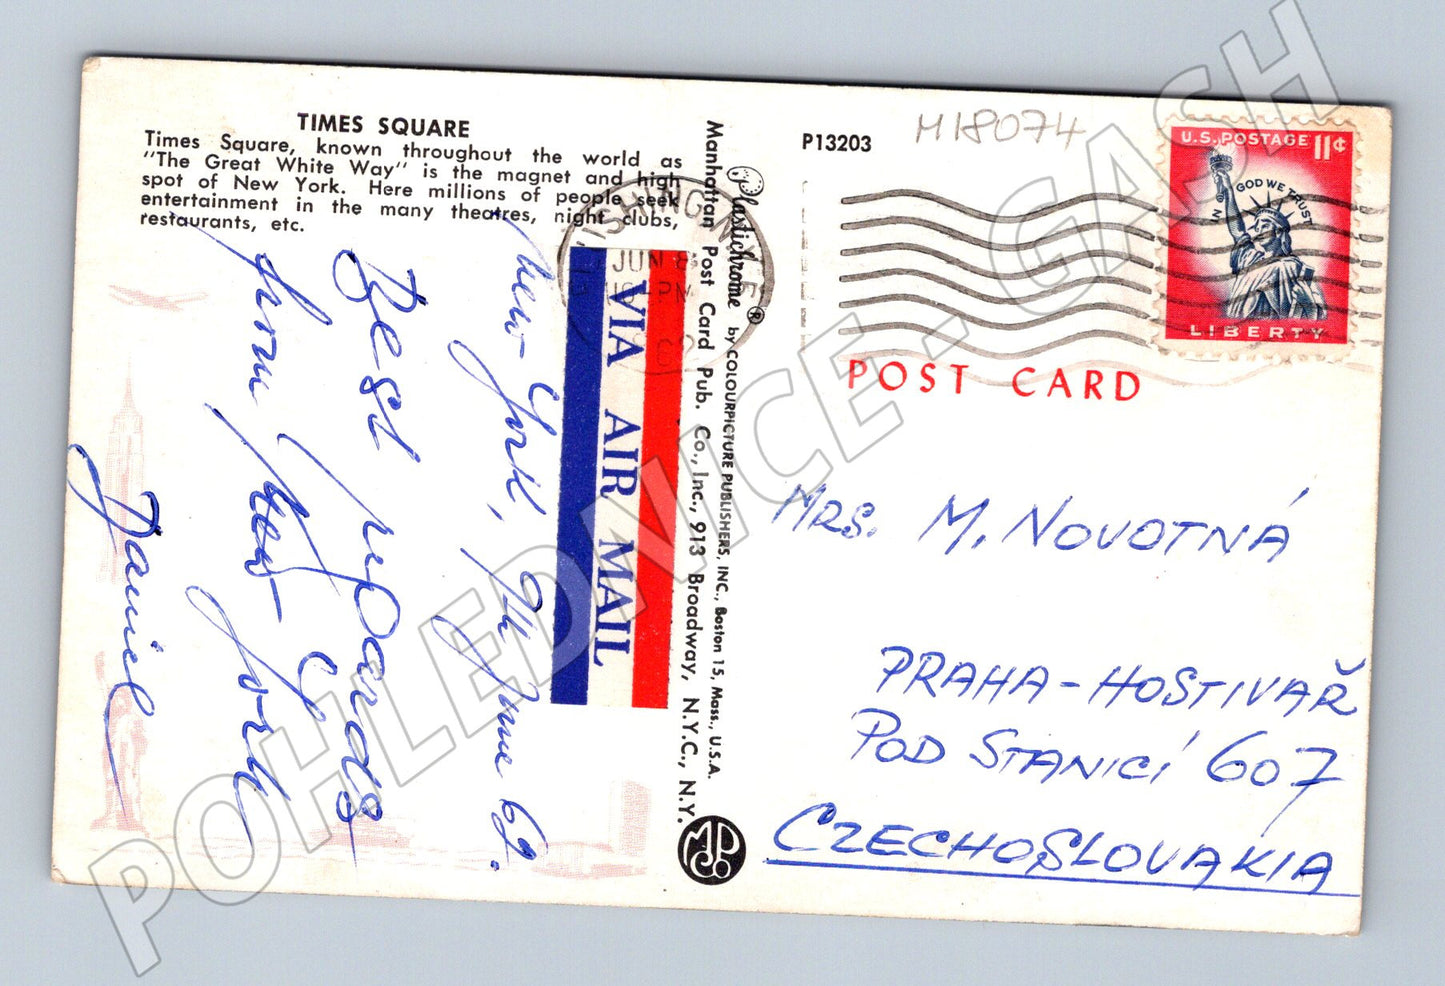 TIMES SQUARE
Times Square, known throughout the world as
"The Great White Way" is the magnet and high
spot of New York. Here millions of people seek
entertainment in the many theatres, night clubs,
restaurants, etc.
New York, 9th June 62.
Best regards
from New York
Daniel
VIA AIR MAIL
JUN 8
PM
Plastichrome ® by COLOURPICTURE PUBLISHERS, INC., Boston 15, Mass., U.S.A.
Manhattan Post Card Pub. Co., Inc., 913 Broadway, N.Y.C., N.Y.
P13203
H18074
U.S. POSTAGE 11¢
IN GOD WE TRUST
LIBERTY
POST CARD
MRS. M. NOVOTNÁ
PRAHA-HOSTIVAŘ
POD STANICÍ 607
CZECHOSLOVAKIA
POHLEDNICE - GASH